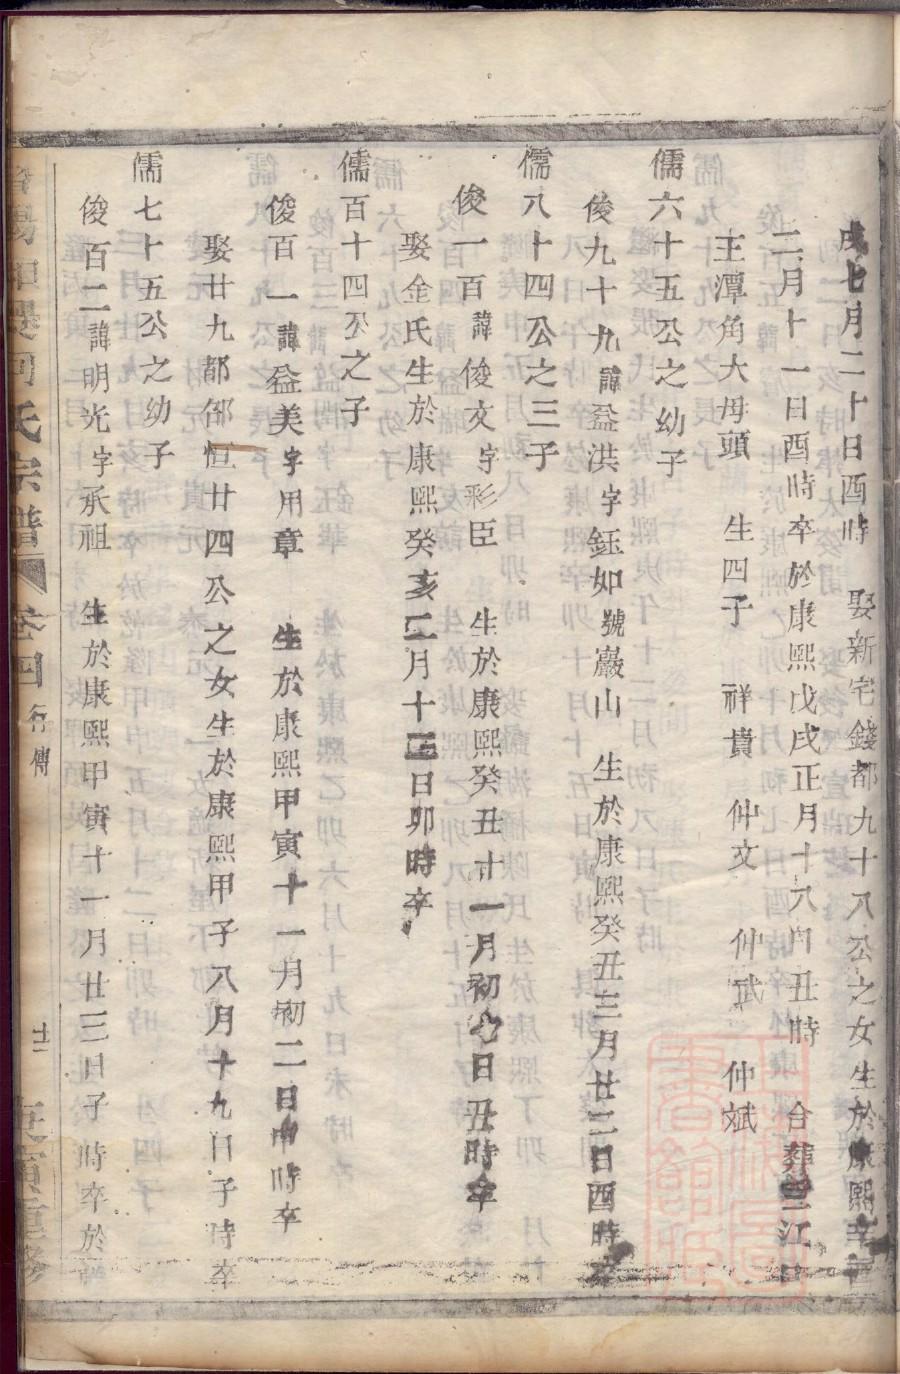 戌七月二十日酉時　娶新宅錢都九十八公之女生於康熙辛
二月十一日酉時卒於康熙戊戌正月十八日丑時　合葬三江
主潭角大毋頭　生四子　祥貴　仲文　仲武　仲斌
儒六十五公之幼子
俊九十九諱益洪字鈺如號巖山　生於康熙癸丑三月廿二日酉時
儒八十四公之三子
俊一百諱俊文字彩臣　生於康熙癸丑十一月初七日丑時卒
娶金氏生於康熙癸亥二月十三日卯時卒
儒百十四公之子
俊百一諱益美字用章　生於康熙甲寅十一月初二日申時卒
娶廿九都邵恒廿四公之女生於康熙甲子八月十九日子時卒
儒七十五公之幼子
俊百二諱明光字承祖　生於康熙甲寅十一月廿三日子時卒於
氏宗譜　卷四　行傳　重修